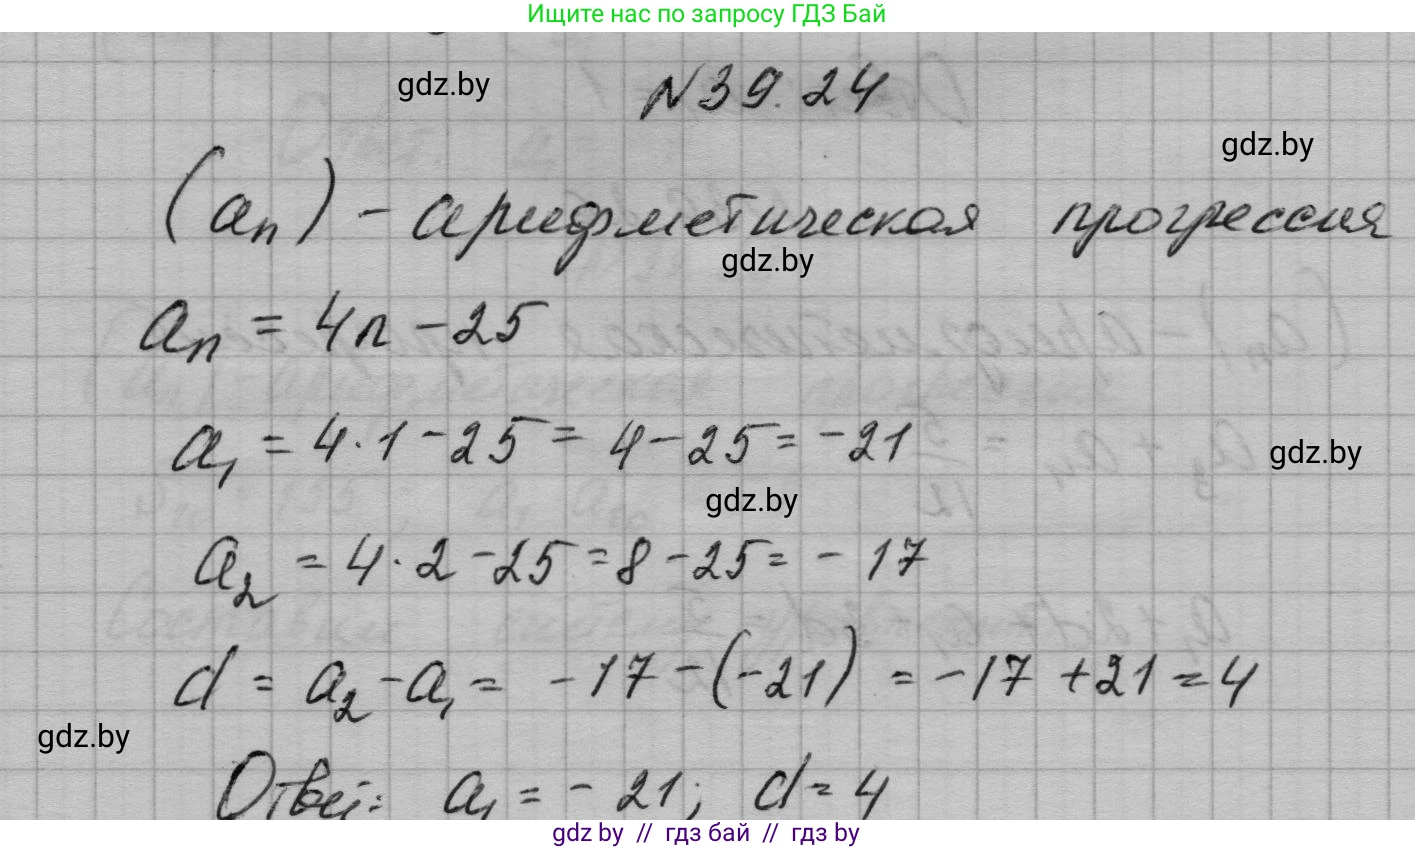 Ищите нас по запросу ГДЗ Бай
gdz.by
N39.24
gdz.by
(aₙ) - арифметическая прогрессия
gdz.by
aₙ = 4n - 25
a₁ = 4·1 - 25 = 4 - 25 = -21
gdz.by
gdz.by
a₂ = 4·2 - 25 = 8 - 25 = -17
d = a₂ - a₁ = -17 - (-21) = -17 + 21 = 4
gdz.by
Ответ: a₁ = -21; d = 4
gdz by // гдз бай // гдз by